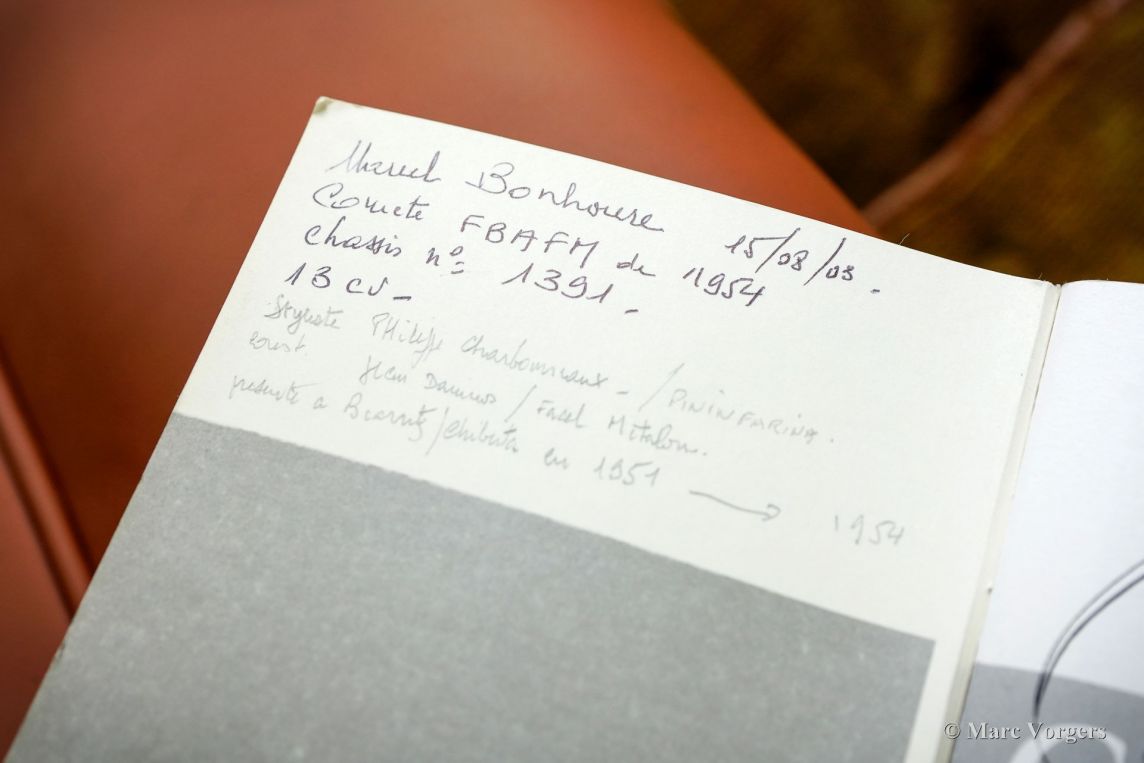 Marcel Bonhoure 15/08/03.
Comete FBAFM de 1954
chassis n° 1391.
13 cv
Styliste Philippe Charbonneaux / PININFARINA.
const. Jean Daninos / Facel Métalon.
présenté à Biarritz / en 1951 → 1954
© Marc Vorgers